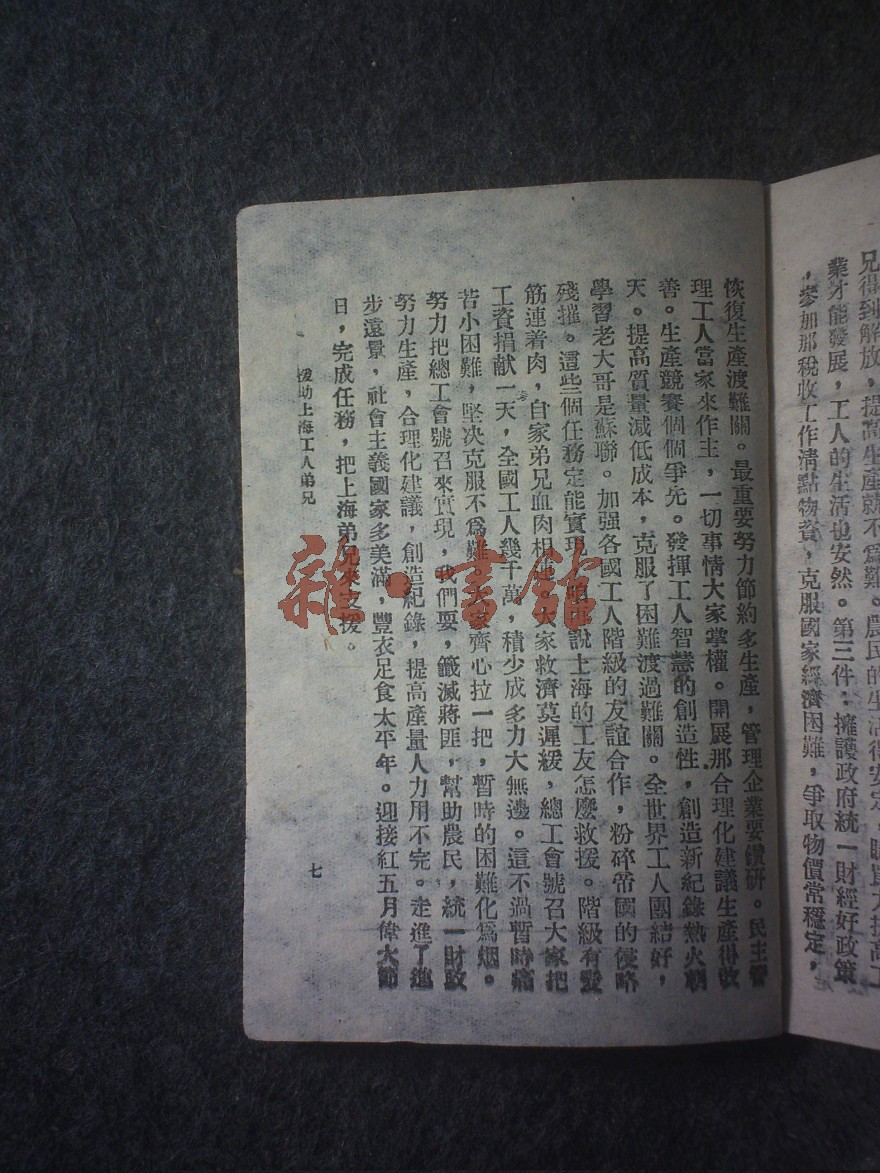 兄得到解放，提高生產就不爲難。農民的生活得安定，購買力提高工
業才能發展，工人的生活也安然。第三件：擁護政府統一財經好政策
，參加那稅收工作淸點物資，克服國家經濟困難，爭取物價常穩定，
恢復生產渡難關。最重要努力節約多生產，管理企業要鑽研。民主管
理工人當家來作主，一切事情大家掌權。開展那合理化建議生產得改
善。生產競賽個個爭先。發揮工人智慧的創造性，創造新紀錄熱火朝
天。提高質量減低成本，克服了困難渡過難關。全世界工人團結好，
學習老大哥是蘇聯。加强各國工人階級的友誼合作，粉碎帝國的侵略
殘摧。這些個任務定能實現。說上海的工友怎麼救援。階級有愛
筋連着肉，自家弟兄血肉相連。大家救濟莫遲緩，總工會號召大家把
工資捐献一天，全國工人幾千萬，積少成多力大無邊。這不過暫時痛
苦小困難，堅决克服不爲難。大家齊心拉一把，暫時的困難化爲烟。
努力把總工會號召來實現，我們要，殲滅蔣匪，幫助農民，統一財政
努力生產，合理化建議，創造紀錄，提高產量人力用不完。走進了進
步遠景，社會主義國家多美滿，豐衣足食太平年。迎接紅五月偉大節
日，完成任務，把上海弟兄來支援。
援助上海工人弟兄
七
雜·書館